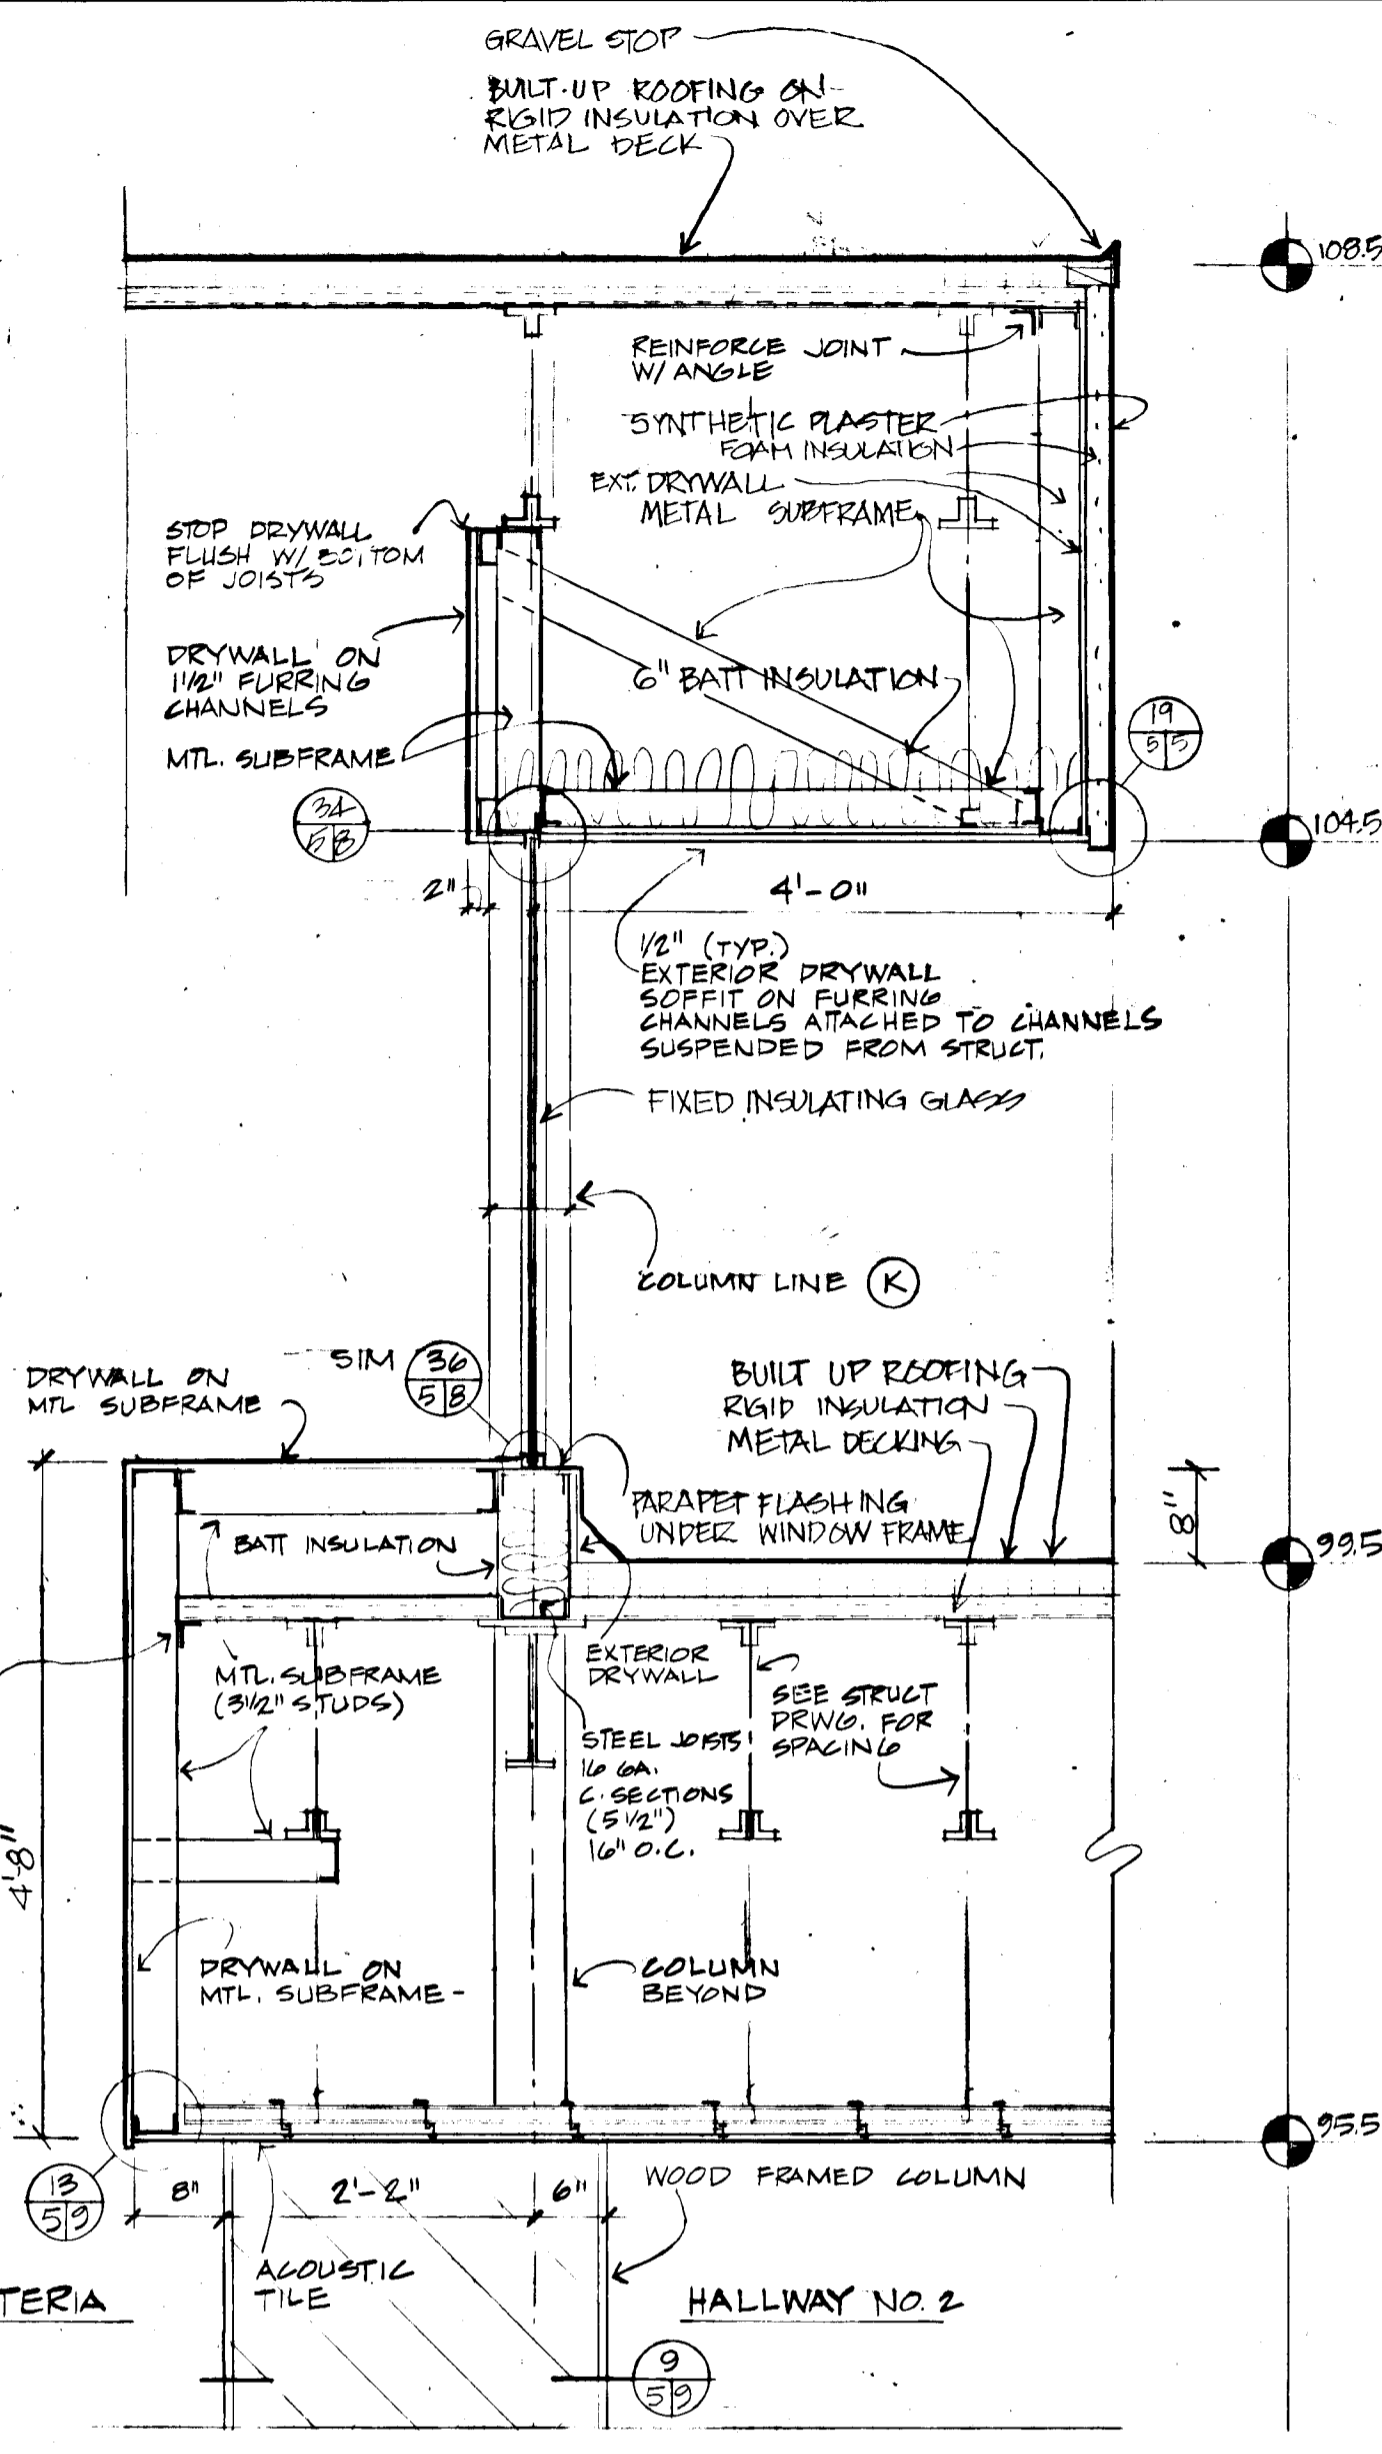 GRAVEL STOP
BUILT-UP ROOFING ON
RIGID INSULATION OVER
METAL DECK
108.5
REINFORCE JOINT
W/ ANGLE
SYNTHETIC PLASTER
FOAM INSULATION
EXT. DRYWALL
METAL SUBFRAME
STOP DRYWALL
FLUSH W/ BOTTOM
OF JOISTS
DRYWALL ON
1 1/2" FURRING
CHANNELS
6" BATT INSULATION
MTL. SUBFRAME
19
5 5
34
5 8
104.5
2"
4'-0"
1/2" (TYP.)
EXTERIOR DRYWALL
SOFFIT ON FURRING
CHANNELS ATTACHED TO CHANNELS
SUSPENDED FROM STRUCT.
FIXED INSULATING GLASS
COLUMN LINE K
SIM 36
5 8
DRYWALL ON
MTL SUBFRAME
BUILT UP ROOFING
RIGID INSULATION
METAL DECKING
PARAPET FLASHING
UNDER WINDOW FRAME
8"
99.5
BATT INSULATION
EXTERIOR
DRYWALL
MTL. SUBFRAME
(3 1/2" STUDS)
SEE STRUCT
DRWG. FOR
SPACING
STEEL JOISTS
16 GA.
C-SECTIONS
(5 1/2")
16" O.C.
4'-8"
DRYWALL ON
MTL. SUBFRAME -
COLUMN
BEYOND
95.5
13
5 9
8"
2'-2"
6"
WOOD FRAMED COLUMN
ACOUSTIC
TILE
TERIA
HALLWAY NO. 2
9
5 9